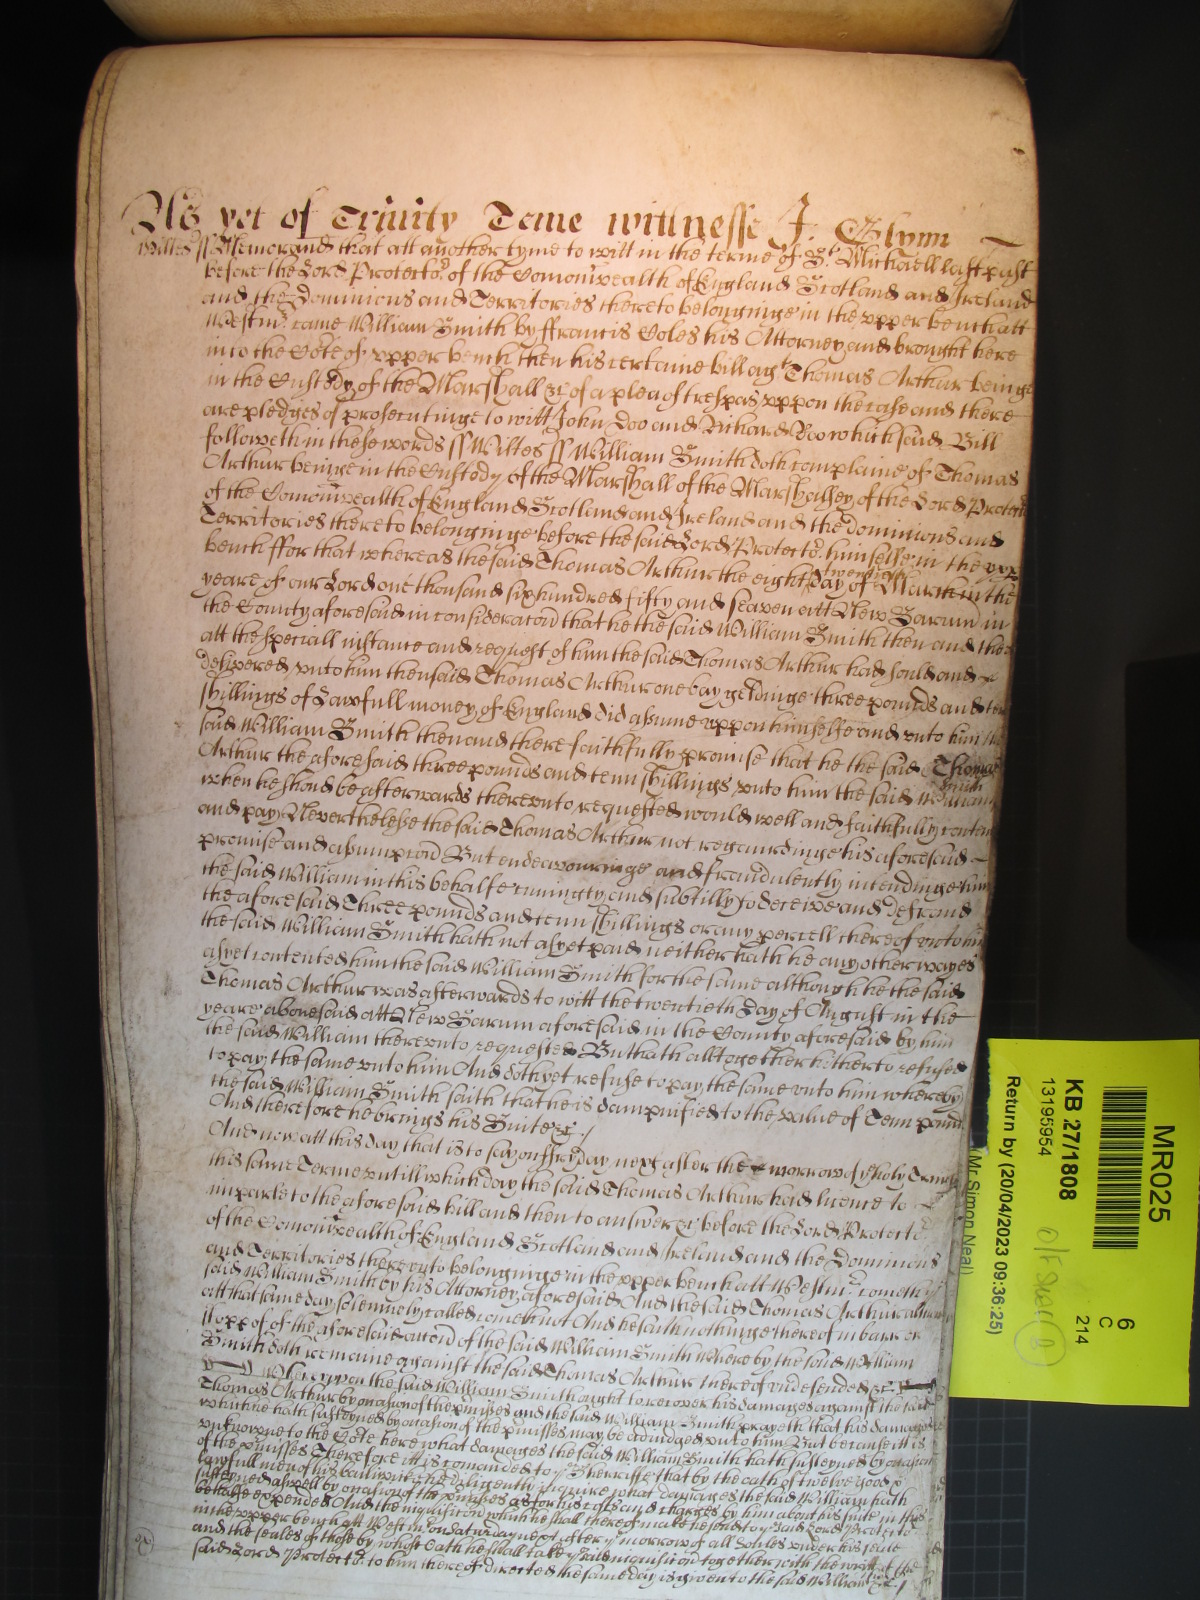 As yet of Trinity Terme wittnesse J: Glynn
Wiltes ss Memorand that att another tyme to witt in the terme of St. Michaell last past
before the Lord Protector of the Comonwealth of England Scotland and Ireland
and the Dominions and Territories thereto belonginge in the upper bench att
Westmr. came William Smith by ffrancis Coles his Attorney and brought here
into the Cote of upper bench then his certaine bill agt Thomas Arthur beinge
in the Custody of the Marshall &c of a plea of trespas uppon the case and there
are pledges of prosecutinge to witt John Doo and Richard Roo which said Bill
followeth in these words ss Wiltes ss William Smith doth complaine of Thomas
Arthur beinge in the Custody of the Marshall of the Marshalsey of the Lord Protector
of the Comonwealth of England Scotland and Ireland and the dominions and
Territories thereto belonginge before the said Lord Protector himselfe in the upp
bench ffor that whereas the said Thomas Arthur the eight & twentieth day of March in the
yeare of our Lord one thousand six hundred fifty and seaven att New Sarum in
the County aforesaid in consideracon that he the said William Smith then and there
att the speciall instance and request of him the said Thomas Arthur had sould and
delivered unto him the said Thomas Arthur one bay geldinge three pounds and ten
shillings of Lawfull money of England did assume uppon himselfe and unto him the
said William Smith then and there faithfully promise that he the said Thomas
Arthur the aforesaid three pounds and tenn shillings unto him the said William Smith
when he should be afterwards thereunto requested would well and faithfully content
and pay Neverthelesse the said Thomas Arthur not regardinge his aforesaid
promise and assumpcion But endeavouringe and fraudulently intendinge him
the said William in this behalfe cunningly and subtilly to deceive and defraud
the aforesaid Three pounds and tenn shillings or any percell thereof unto him
the said William Smith hath not as yet paid neither hath he any other wayes
as yet contented him the said William Smith for the same although he the said
Thomas Arthur was afterwards to witt the twentieth day of August in the
yeare abovesaid att New Sarum aforesaid in the County aforesaid by him
the said William thereunto requested But hath alltogether hitherto refused
to pay the same unto him And doth yet refuse to pay the same unto him whereby
the said William Smith saith that he is dampnified to the value of Tenn pound
And therefore he brings his Suite &c /
And now att this day that is to say on ffryday next after the morrow of ye holy Trinity
this same Terme untill which day the said Thomas Arthur had licence to
imparle to the aforesaid bill and then to answer &c before the Lord Protector
of the Comonwealth of England Scotland and Ireland and the Dominions
and Territories thereunto belonginge in the upper bench att Westmr. cometh ye
said William Smith by his Attorney aforesaid And the said Thomas Arthur although
att that same day solemnely called cometh not And he saith nothinge thereof in barr or
stopp of of the aforesaid accon of the said William Smith Whereby the said William
Smith doth remaine against the said Thomas Arthur thereof undefended &c
Whereuppon the said William Smith ought to recover his damages against the said
Thomas Arthur by occasion of the pmisses and the said William Smith prayeth that his damages
which he hath susteyned by occasion of the pmisses may be adiudged unto him But because itt is
unknowne to the Cote here what damages the said William Smith hath susteyned by occasion
of the pmisses Therefore itt is comanded to ye Sherriffe that by the oath of twelve good &
lawfull men of his bailiwick he diligently inquire what damages the said William hath
susteyned aswell by occasion of the pmisses as for his costs and charges by him about his suite in this
behalfe expended And the inquisicion which he shall thereof make he send to ye said Lord Protector
in the upper bench att Westmr. on Saturday next after ye morrow of all Soules under his seale
and the seales of those by whose Oath he shall take ye said inquisicion together with the writt of the
said Lord Protector to him thereof directed the same day is given to the said William &c /
MR025
6
C
214
KB 27/1808
13195954
Return by (20/04/2023 09:36:25)
(Mr Simon Neal)